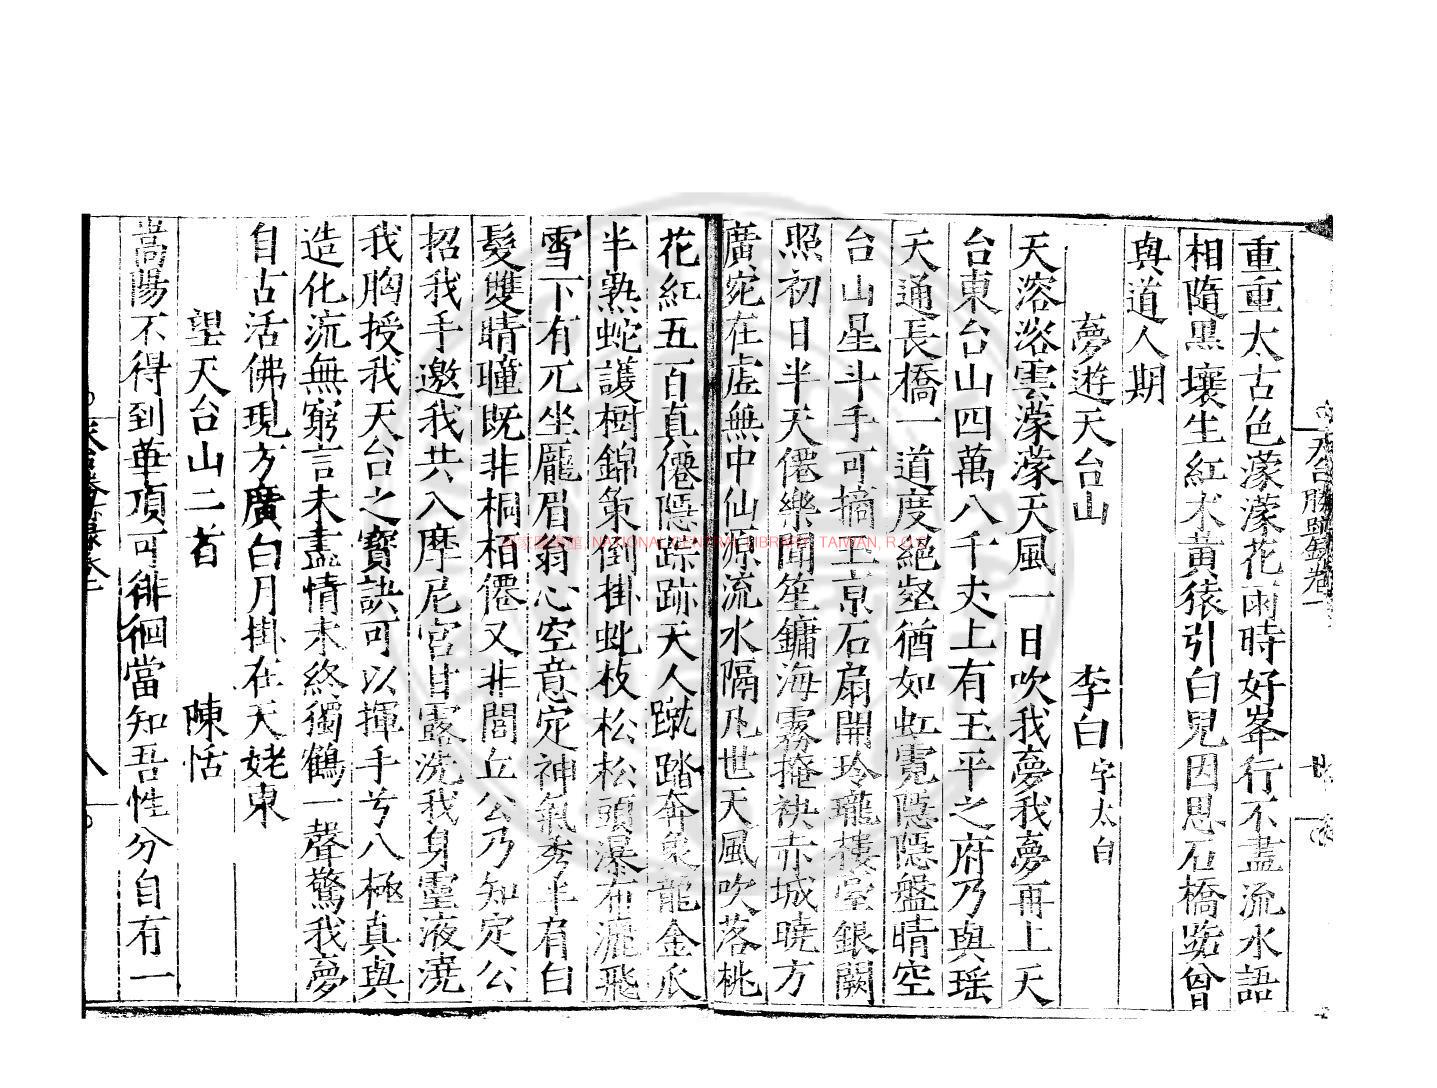 重重太古色濛濛花雨時好峯行不盡流水語
相隨黑壤生紅朮黃猿引白兒因思石橋路曾
與道人期
夢遊天台山 李白 字太白
天溶溶雲濛濛天風一日吹我夢我夢再上天
台東台山四萬八千丈上有玉平之府乃與瑤
天通長橋一道度絕壑猶如虹霓隱隱盤晴空
台山星斗手可摘上京石扇開玲瓏樓臺銀闕
照初日半天僊樂聞笙鏞海霧掩袂赤城曉方
廣宛在虛無中仙源流水隔凡世天風吹落桃
花紅五百真僊隱踪跡天人蹴踏奔象龍金爪
半熟蛇護樹錦䇿倒掛虬枝松松頭瀑布灑飛
雪下有兀坐龐眉翁心空意定神氣秀半肩白
髮雙睛瞳既非桐柏僊又非閭丘公乃知定公
招我手邀我共入摩尼宮甘露洗我身靈液澆
我胸授我天台之寶訣可以揮手兮八極真與
造化流無窮言未盡情未終獨鶴一聲驚我夢
自古活佛現方廣白月掛在天姥東
望天台山二首 陳恬
嵩陽不得到華頂可徘徊當知吾性分自有一
天台勝蹟錄卷一
NATIONAL CENTRAL LIBRARY, TAIWAN, R.O.C